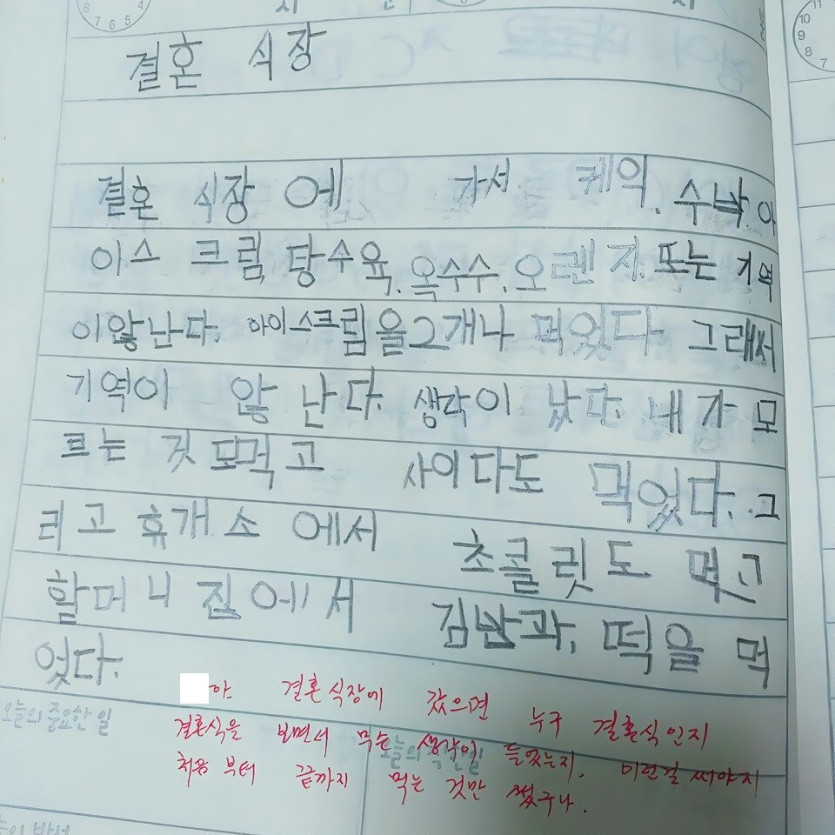 결혼 식장
결혼 식장 에 가서 케익, 수박, 아
이스 크림, 탕수육, 옥수수, 오렌 지, 또는 기억
이않난다. 아이스크림을2개나 먹었다. 그래서
기역이 않 난다. 생각이 났다. 내가 모
르는 것 모먹고 사이다도 먹었다. 그
리고 휴개소 에서 초콜릿도 먹고
할머니 집에서 김밥과, 떡을 먹
었다.
야 결혼식장에 갔으면 누구 결혼식인지
결혼식을 보면서 무슨 생각이 들었는지, 이런걸 써야지
처음 부터 끝까지 먹는 것만 썼구나.
오늘의 중요한 일